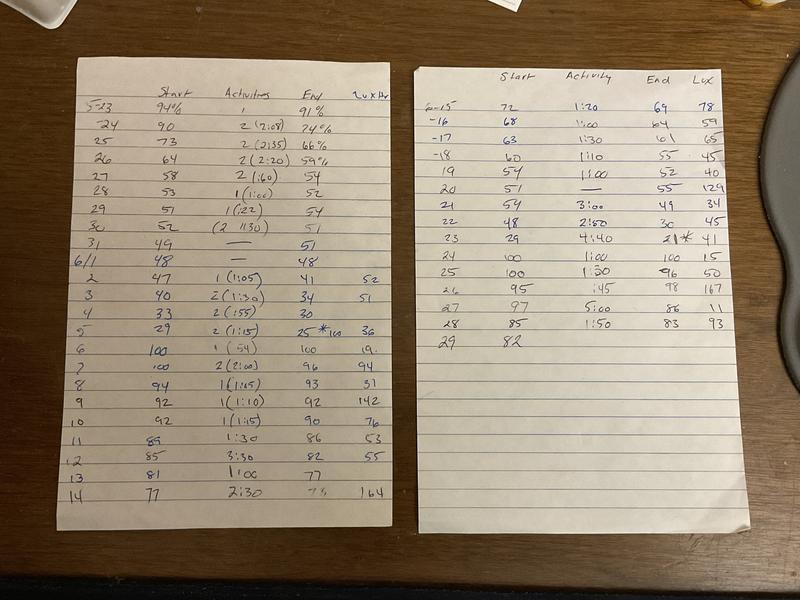 Start Activities End Lux Hr
5-23 94% 1 91%
-24 90 2 (2:08) 74%
25 73 2 (2:35) 66%
26 64 2 (2:20) 59%
27 58 2 (:60) 54
28 53 1 (1:00) 52
29 51 1 (:22) 54
30 52 (2 1:30) 51
31 49 — 51
6/1 48 — 48
2 47 1 (1:05) 41 52
3 40 2 (1:30) 34 51
4 33 2 (:55) 30
5 29 2 (1:15) 25 *100 36
6 100 1 (54) 100 19
7 100 2 (2:00) 96 94
8 94 1 (1:45) 93 31
9 92 1 (1:10) 92 142
10 92 1 (1:15) 90 76
11 89 1:30 86 53
12 85 3:30 82 55
13 81 1:00 77
14 77 2:30 73 164
Start Activity End Lux
6-15 72 1:20 69 78
-16 68 1:00 64 59
-17 63 1:30 61 65
-18 60 1:10 55 45
19 54 1:00 52 40
20 51 — 55 129
21 54 3:00 49 34
22 48 2:50 30 45
23 29 4:40 21* 41
24 100 1:00 100 15
25 100 1:30 96 50
26 95 :45 98 167
27 97 5:00 86 11
28 85 1:50 83 93
29 82